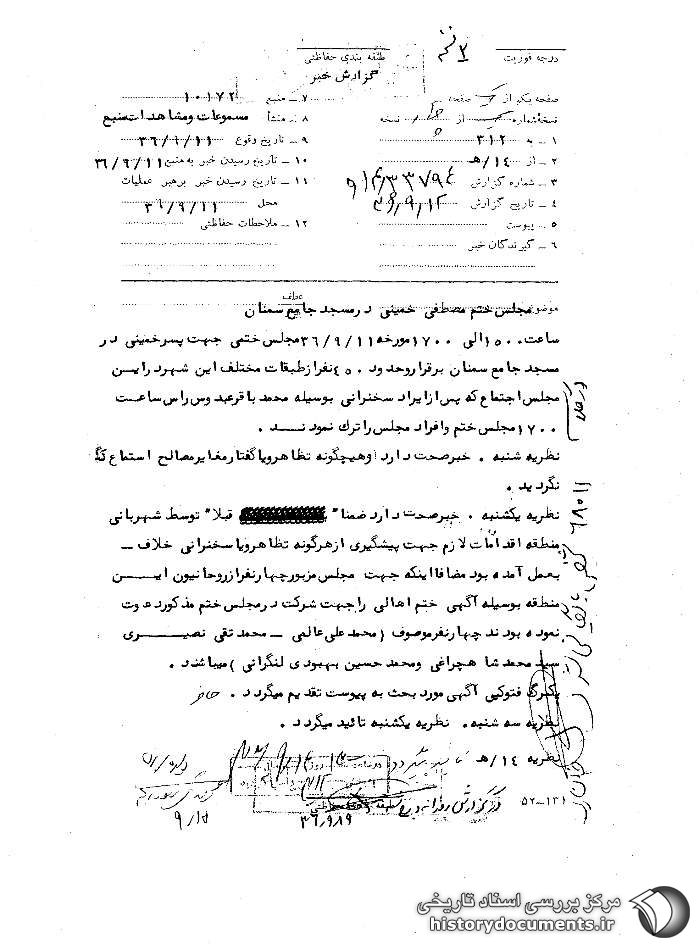 درجه فوریت
طبقه بندی حفاظتی
گزارش خبر
صفحه یک از صفحه
نسخه شماره از نسخه
۱ ـ به ۳۱۲
۲ ـ از ۱۴/هـ
۳ ـ شماره گزارش
۴ ـ تاریخ گزارش ۳۶/۹/۱۲
۵ ـ پیوست
۶ ـ گیرندگان خبر
۷ ـ منبع ۱۰۱۷۲
۸ ـ منشأ مسموعات ومشاهدات منبع
۹ ـ تاریخ وقوع ۳۶/۹/۱۱
۱۰ ـ تاریخ رسیدن خبر به منبع ۳۶/۹/۱۱
۱۱ ـ تاریخ رسیدن خبر برهبر عملیات
محل ۳۶/۹/۱۱
۱۲ ـ ملاحظات حفاظتی
عطف
موضوع مجلس ختم مصطفی خمینی در مسجد جامع سمنان
ساعت ۱۵۰۰ الی ۱۷۰۰ مورخه ۳۶/۹/۱۱ مجلس ختمی جهت پسرخمینی در
مسجد جامع سمنان برقرار وحدود ۴۵۰ نفر از طبقات مختلف این شهر در این
مجلس اجتماع که پس از ایراد سخنرانی بوسیله محمد باقر عبدوس راس ساعت
۱۷۰۰ مجلس ختم وافراد مجلس را ترك نمودند .
نظریه شنبه . خبرصحت دارد وهیچگونه تظاهر ویا گفتار مغایر مصالح استماع
نگردید .
نظریه یکشنبه . خبرصحت دارد ضمنا" قبلا" توسط شهربانی
منطقه اقدامات لازم جهت پیشگیری از هرگونه تظاهر ویا سخنرانی خلاف ـ
بعمل آمده بود مضافا اینکه جهت مجلس مزبور چهارنفر از روحانیون این
منطقه بوسیله آگهی ختم اهالی را جهت شرکت در مجلس ختم مذکور دعوت
نموده بودند چهارنفر موصوف (محمد علی عالمی ـ محمد تقی نصیری
سید محمد شاهچراغی ومحمد حسین بهبودی لنگرانی) میباشند .
یکبرگ فتوکپی آگهی مورد بحث به پیوست تقدیم میگردد .
نظریه سه شنبه . نظریه یکشنبه تائید میگردد .
نظریه ۱۴/هـ
طبقه بندی حفاظتی
۵۲ـ۱۳۱
۳۶/۹/۱۹
۹/۱۵
مرکز بررسی اسناد تاریخی
historydocuments.ir